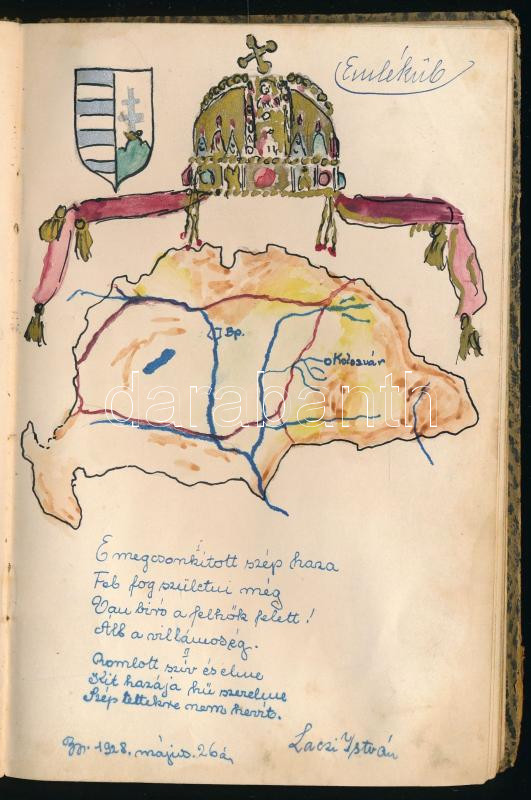 Emlékül
Bp.
Kolozsvár
darabanth
I
E megcsonkított szép haza
Fel fog születni még
Van biró a felhők felett!
Áll a villámos ég.
II
Romlott szív és elme
Kit hazája hű szerelme
Szép tettekre nem hevít.
Bp. 1928. május. 26án
Laczi István